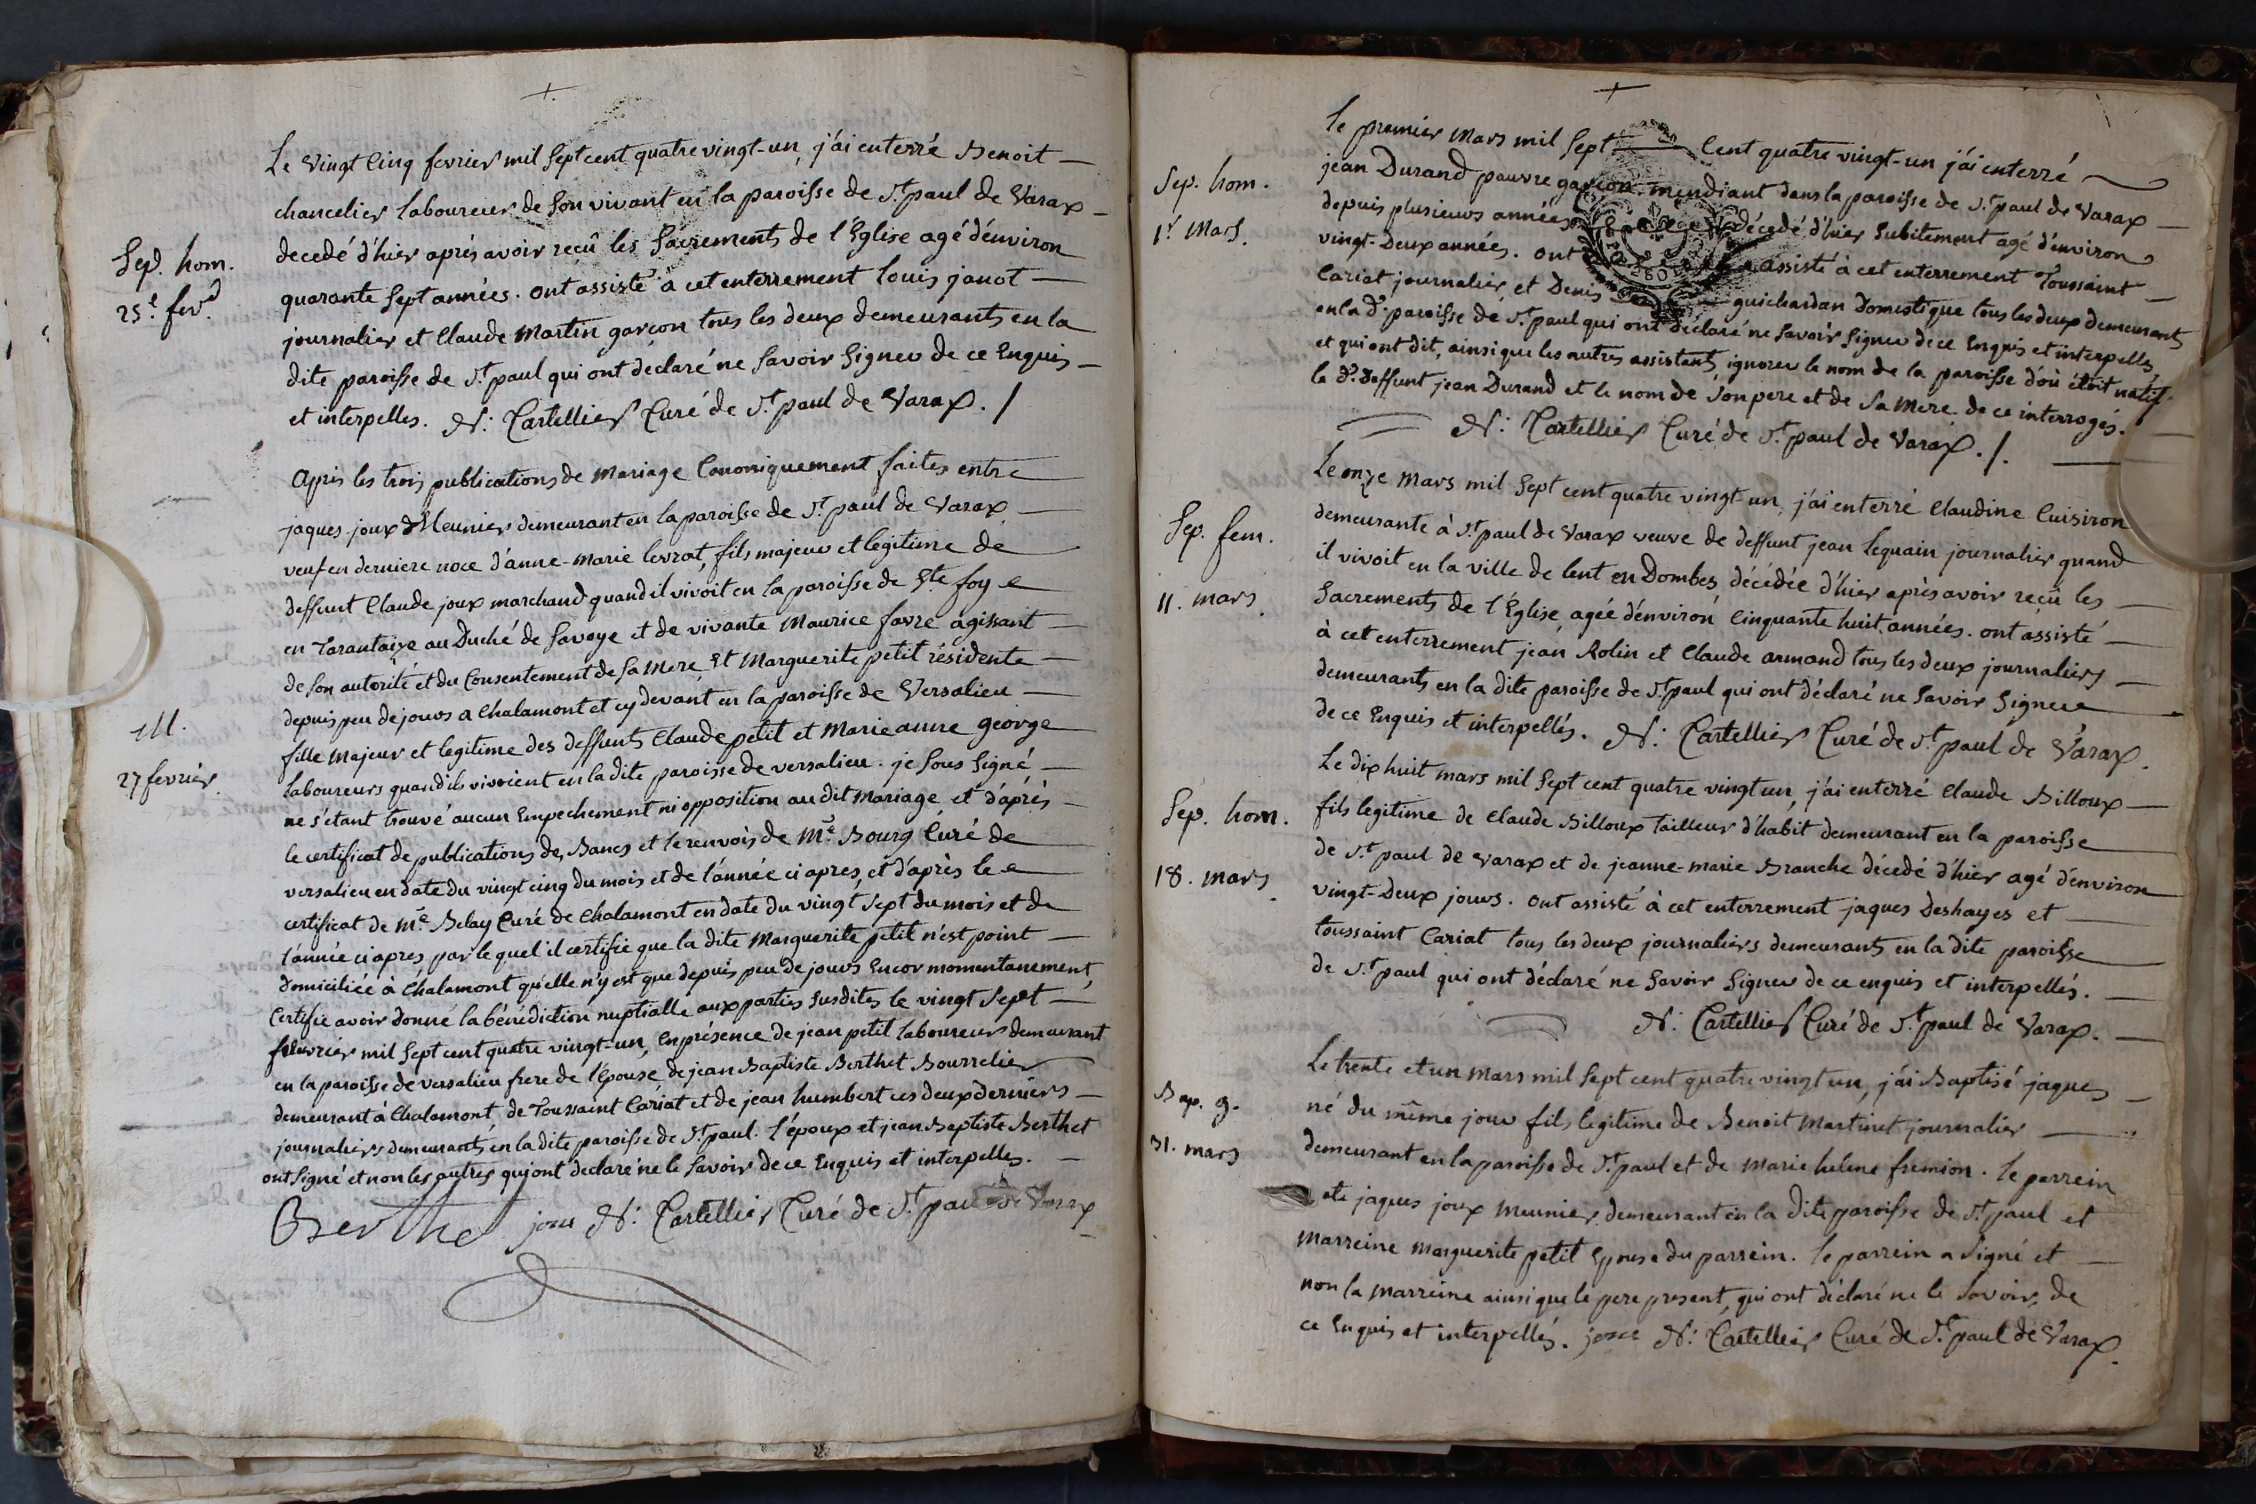 +.
Le vingt Cinq fevrier mil Sept cent quatre vingt-un j'ai enterré Benoit
chancelier laboureur de Son vivant en la paroisse de St. paul de Varax
decedé d'hier aprés avoir reçû les Sacrements de l'Eglise agé d'énviron
quarante Sept années. ont assisté à cet enterrement louis janot
journalier et Claude Martin garçon tous les deux demeurants en la
dite paroisse de St. paul qui ont déclaré ne Savoir Signer de ce Enquis
et interpelles. N: Cartellier Curé de St. paul de Varax. /
Sep. hom.
25e. fev.
Aprés les trois publications de Mariage Canoniquement faites entre
jaques joux Meunier demeurant en la paroisse de St. paul de Varax
veuf en derniere noce d'anne-Marie levrat, fils majeur et legitime de
deffunt Claude joux marchand quand il vivoit en la paroisse de Ste. foy
en Tarantaize au Duché de Savoye et de vivante Maurice favre agissant
de Son autorité et du Consentement de Sa Mere, Et Marguerite petit résidente
depuis peu de jours a Chalamont et cy devant en la paroisse de Versalieu
fille Majeur et legitime des deffunts Claude petit et Marie anne george
laboureurs quand ils vivoient en la dite paroisse de versalieu. je Sous Signé
ne s'étant trouvé aucun Empechement ni opposition au dit Mariage et d'aprés
le certificat de publications des Bancs et le renvois de Mre. Bourg Curé de
versalieu en date du vingt cinq du mois et de l'année ci apres, et d'après le
certificat de Mre. Belay Curé de Chalamont en date du vingt Sept du mois et de
l'année ci apres par le quel il certifie que la dite Marguerite petit n'est point
domiciliée à Chalamont qu'elle n'y est que depuis peu de jours Encor momentanement,
Certifie avoir donné la bénédiction nuptialle aux parties susdites le vingt Sept
fevrier mil Sept cent quatre vingt-un, En présence de jean petit laboureur demeurant
en la paroisse de versalieu frere de l'épouse, de jean Baptiste Berthet Bourrelier
demeurant à Chalamont, de Toussaint Cariat et de jean humbert ces deux derniers
journaliers demeurants en la dite paroisse de St. paul. l'époux et jean Baptiste Berthet
ont Signé et non les autres qui ont déclaré ne le Savoir de ce Enquis et interpelles.
Berthet joux N: Cartellier Curé de St. paul de Varax
M.
27 fevrier.
+
Le premier Mars mil Sept Cent quatre vingt-un j'ai enterré
jean Durand pauvre garçon mendiant dans la paroisse de St. paul de Varax
depuis plusieurs années décedé d'hier Subitement agé d'environ
vingt-Deux années. ont assisté à cet enterrement Toussaint
Cariat journalier, et Denis guichardan Domestique tous les deux demeurants
en la de. paroisse de St. paul qui ont déclaré ne Savoir Signer de ce Enquis et interpellés,
et qui ont dit, ainsi que les autres assistants, ignorer le nom de la paroisse d'où étoit natif
le dt. Deffunt jean Durand et le nom de Son pere et de Sa Mere de ce interrogés.
N: Cartellier Curé de St. paul de Varax. /.
Sep. hom.
1r. Mars.
Le onze Mars mil Sept cent quatre vingt-un, j'ai enterré Claudine Cuisiron
demeurante à St. paul de Varax veuve de deffunt jean Lequain journalier quand
il vivoit en la ville de lent en Dombes, décédée d'hier après avoir reçû les
Sacrements de l'Église, agée d'énviron Cinquante huit années. ont assisté
à cet enterrement jean Rolin et Claude armand tous les deux journaliers
demeurants en la dite paroisse de St. paul qui ont déclaré ne Savoir Signer
de ce Enquis et interpellés. N: Cartellier Curé de St. paul de Varax.
Sep. fem.
11. mars
Le dix huit mars mil Sept cent quatre vingt un, j'ai enterré Claude Billoux
fils legitime de Claude Billoux Tailleur d'habit demeurant en la paroisse
de St. paul de Varax et de jeanne-marie Branche décedé d'hier agé d'énviron
vingt-Deux jours. ont assisté à cet enterrement jaques Deshayes et
toussaint Cariat tous les deux journaliers demeurants en la dite paroisse
de St. paul qui ont déclaré ne Savoir Signer de ce enquis et interpellés.
N: Cartellier Curé de St. paul de Varax.
Sep. hom.
18. mars
Le trente et un mars mil Sept cent quatre vingt un, j'ai Baptisé jaques
né du même jour fils legitime de Benoit Martinet journalier
demeurant en la paroisse de St. paul et de Marie helene fremion. le parrein
eté jaques joux Meunier demeurant en la dite paroisse de St. paul et
Marreine Marguerite petit Epouse du parrein. le parrein a Signé et
non la Marreine ainsi que le pere present, qui ont déclaré ne le Savoir, de
ce Enquis et interpellés. joux N: Cartellier Curé de St. paul de Varax.
Bap. g.
31. mars